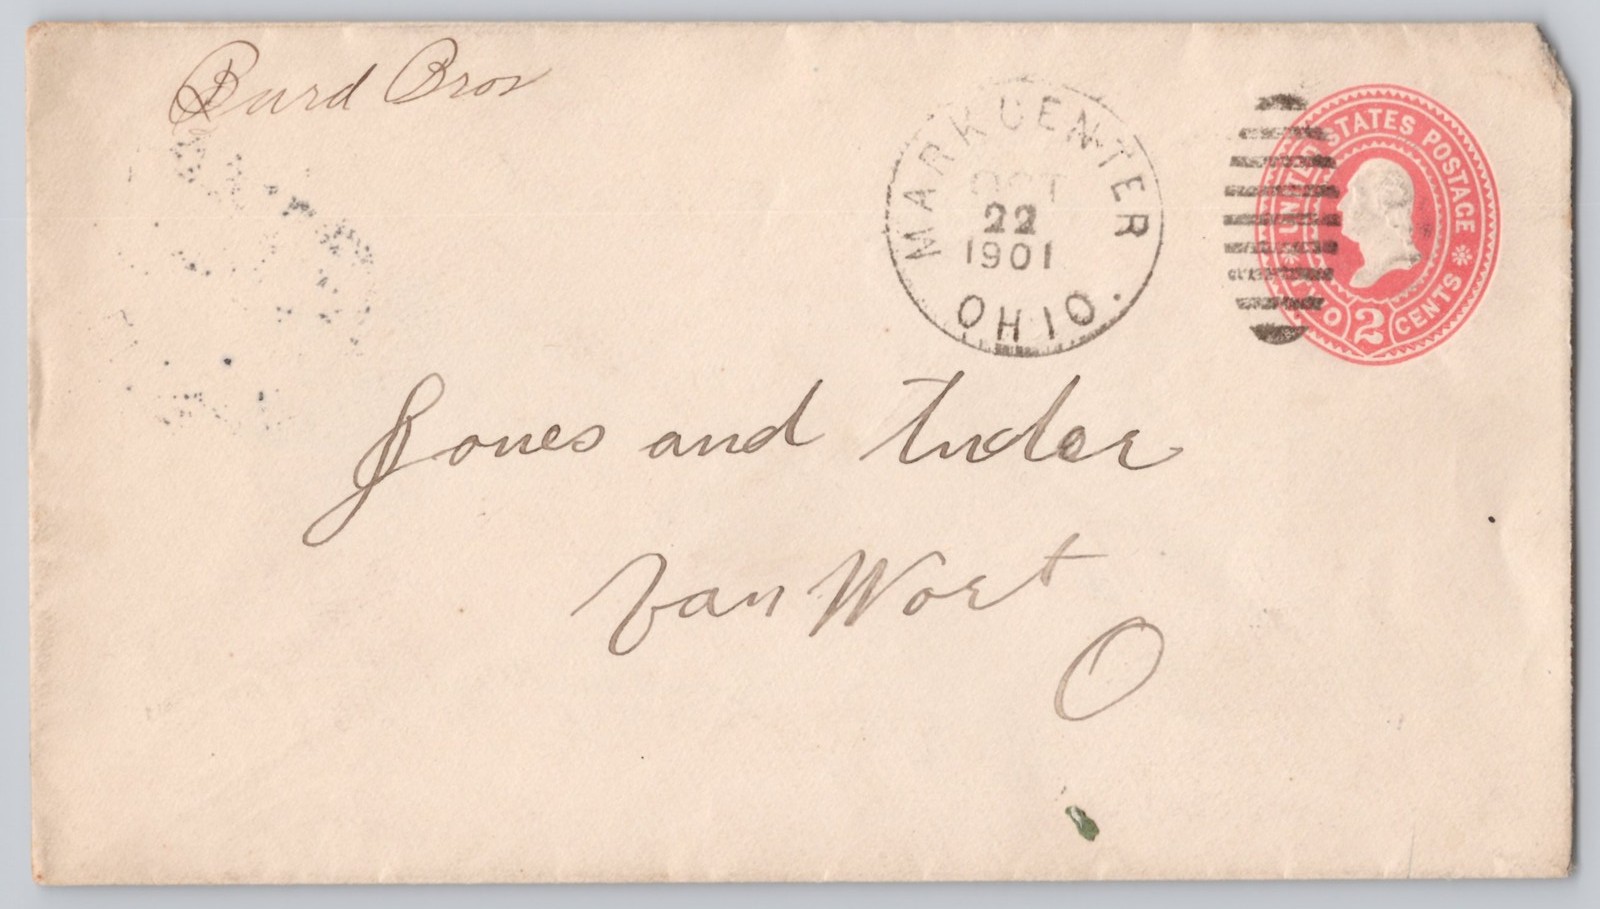 Burd Bros
MARK CENTER
OCT
22
1901
OHIO.
UNITED STATES POSTAGE
TWO 2 CENTS
Jones and Tudor
Van Wert
O